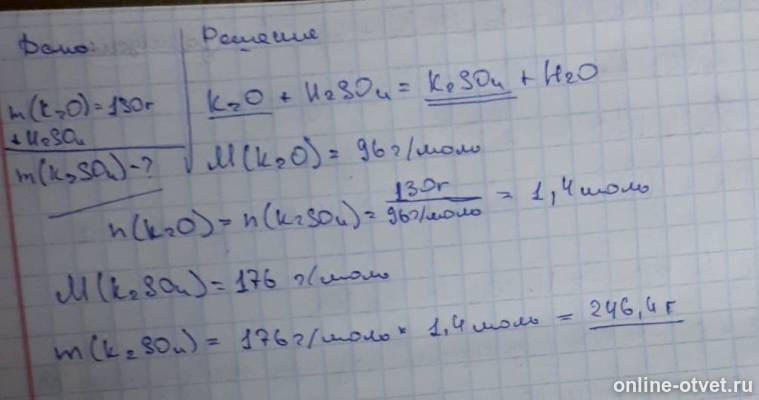 Дано:
Решение
m(K₂O)=130г
+H₂SO₄
m(K₂SO₄)-?
K₂O + H₂SO₄ = K₂SO₄ + H₂O
M(K₂O)= 96 г/моль
n(K₂O)= n(K₂SO₄)= 130г / 96г/моль = 1,4 моль
M(K₂SO₄)= 176 г/моль
m(K₂SO₄)= 176 г/моль * 1,4 моль = 246,4 г
online-otvet.ru